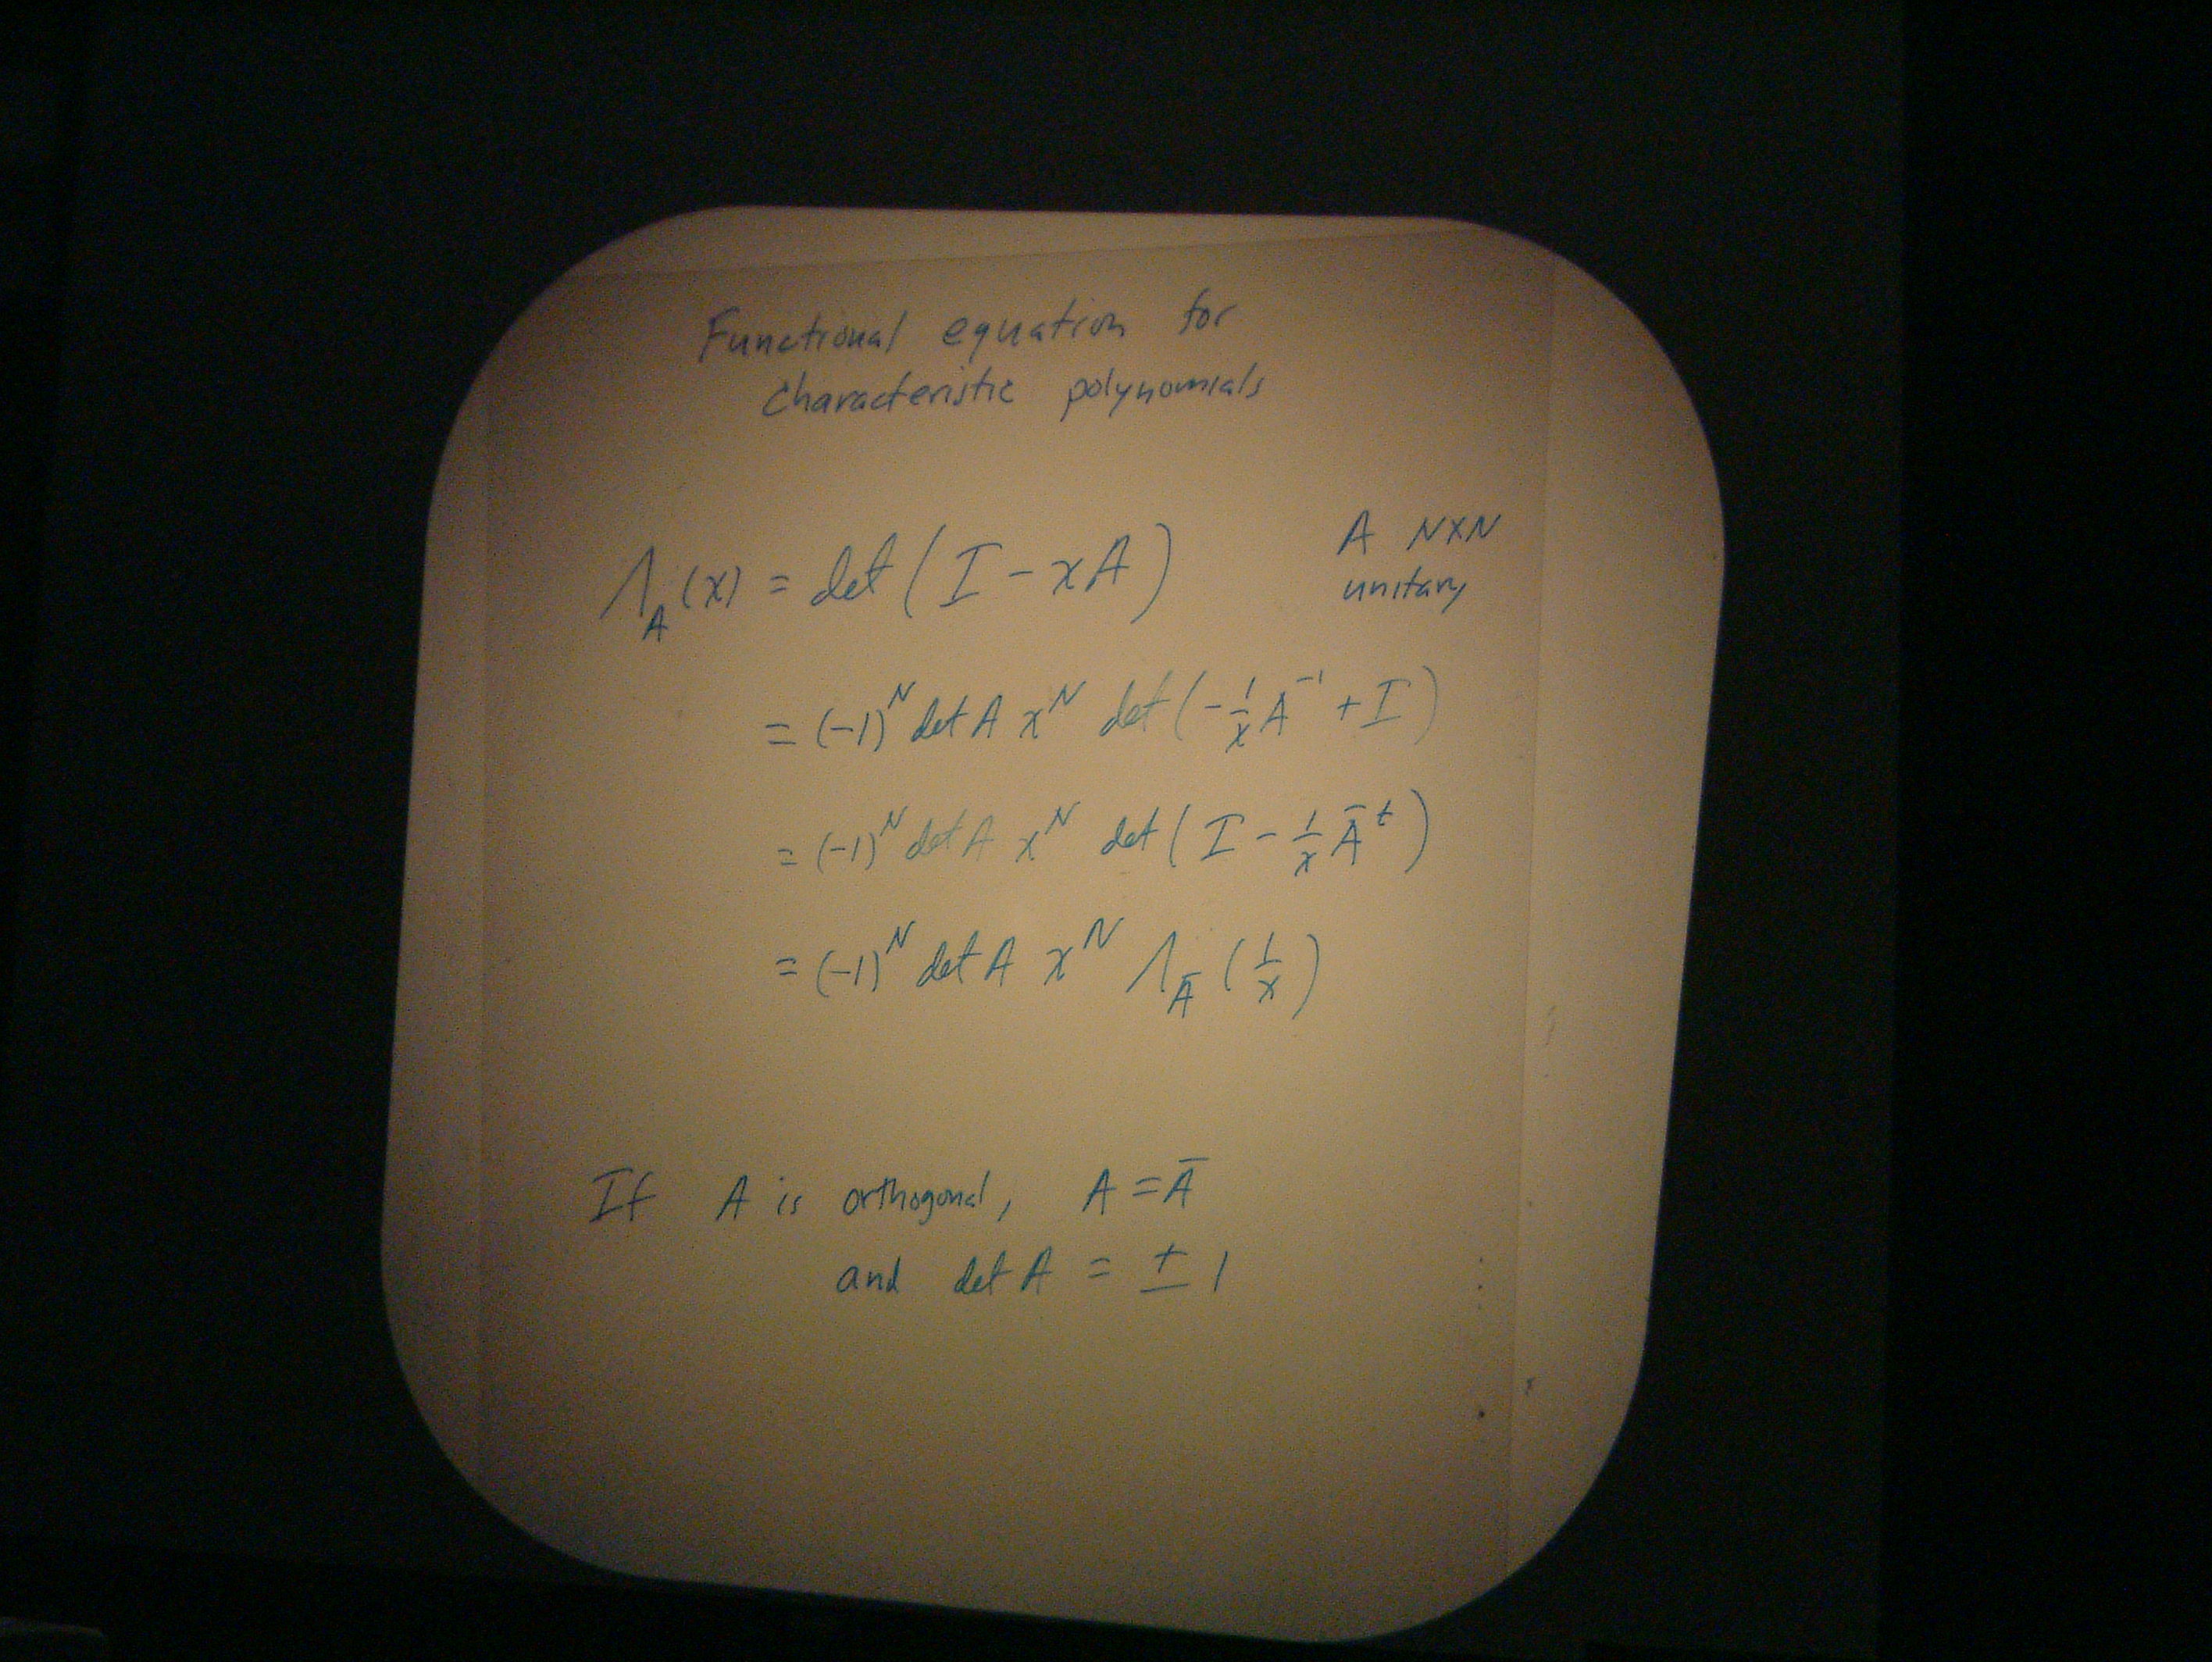 Functional equation for
characteristic polynomials
Λ_A(x) = det(I - xA)    A N×N
unitary
= (-1)^N det A x^N det(-1/x A^-1 + I)
= (-1)^N det A x^N det(I - 1/x Ā^t)
= (-1)^N det A x^N Λ_Ā(1/x)
If A is orthogonal, A = Ā
and det A = ± 1